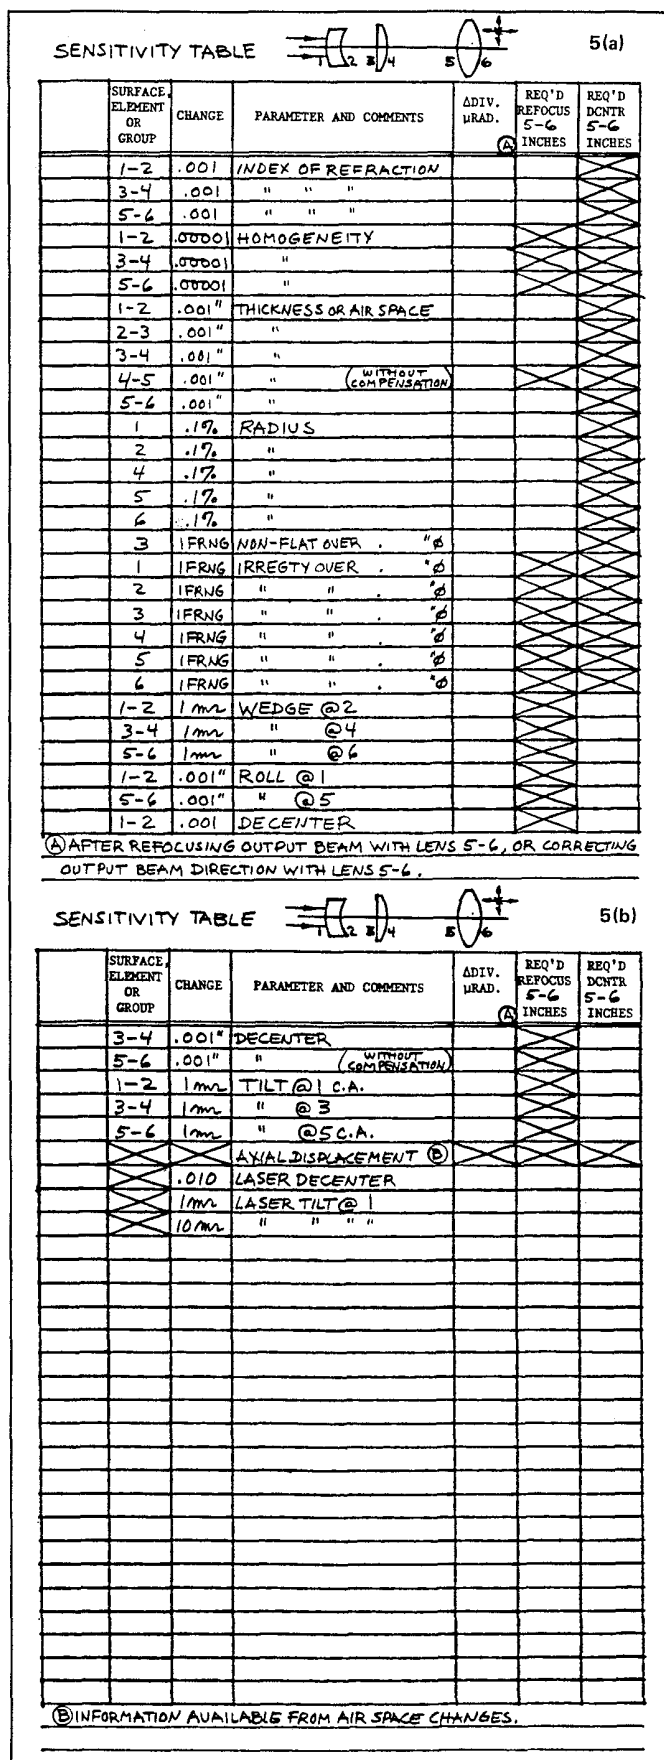 SENSITIVITY TABLE 1 2 3 4 5 6 5(a)
SURFACE, ELEMENT OR GROUP CHANGE PARAMETER AND COMMENTS ΔDIV. μRAD. Ⓐ REQ'D REFOCUS 5-6 INCHES REQ'D DCNTR 5-6 INCHES
1-2 .001 INDEX OF REFRACTION
3-4 .001 " " "
5-6 .001 " " "
1-2 .00001 HOMOGENEITY
3-4 .00001 "
5-6 .00001 "
1-2 .001" THICKNESS OR AIR SPACE
2-3 .001" "
3-4 .001" "
4-5 .001" " (WITHOUT COMPENSATION)
5-6 .001" "
1 .1% RADIUS
2 .1% "
4 .1% "
5 .1% "
6 .1% "
3 1FRNG NON-FLAT OVER . "ø
1 1FRNG IRREGTY OVER . "ø
2 1FRNG " " . "ø
3 1FRNG " " . "ø
4 1FRNG " " . "ø
5 1FRNG " " . "ø
6 1FRNG " " . "ø
1-2 1mr WEDGE @2
3-4 1mr " @4
5-6 1mr " @6
1-2 .001" ROLL @1
5-6 .001" " @5
1-2 .001 DECENTER
Ⓐ AFTER REFOCUSING OUTPUT BEAM WITH LENS 5-6, OR CORRECTING
OUTPUT BEAM DIRECTION WITH LENS 5-6.
SENSITIVITY TABLE 1 2 3 4 5 6 5(b)
SURFACE, ELEMENT OR GROUP CHANGE PARAMETER AND COMMENTS ΔDIV. μRAD. Ⓐ REQ'D REFOCUS 5-6 INCHES REQ'D DCNTR 5-6 INCHES
3-4 .001" DECENTER
5-6 .001" " (WITHOUT COMPENSATION)
1-2 1mr TILT @1 C.A.
3-4 1mr " @3
5-6 1mr " @5 C.A.
AXIAL DISPLACEMENT Ⓑ
.010 LASER DECENTER
1mr LASER TILT @ 1
10mr " " " "
Ⓑ INFORMATION AVAILABLE FROM AIR SPACE CHANGES.